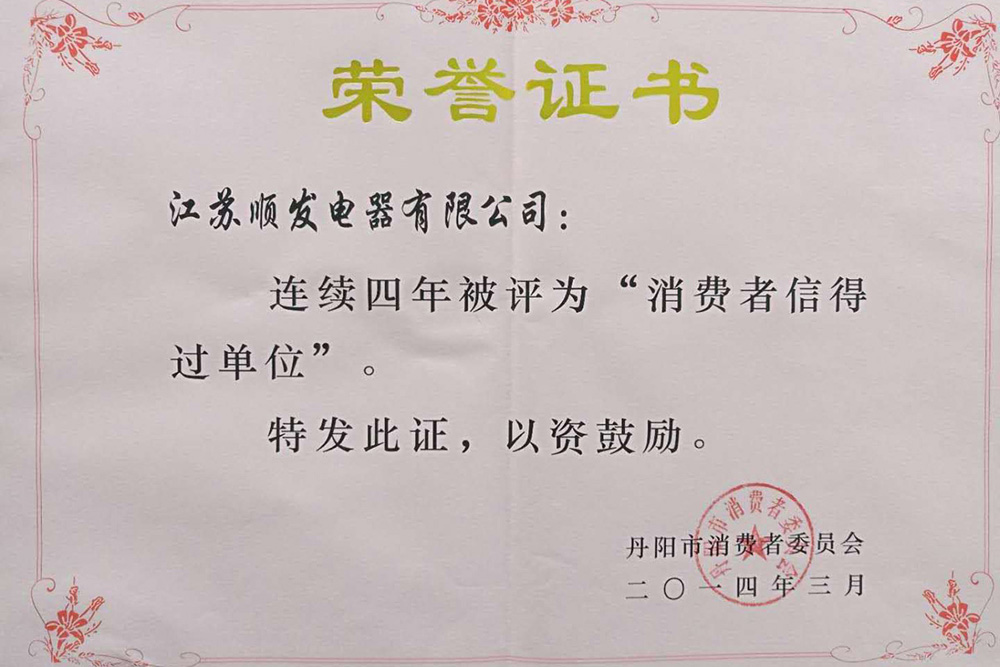 荣誉证书
江苏顺发电器有限公司：
连续四年被评为“消费者信得
过单位”。
特发此证，以资鼓励。
丹阳市消费者委员会
二〇一四年三月
丹阳市消费者委员会